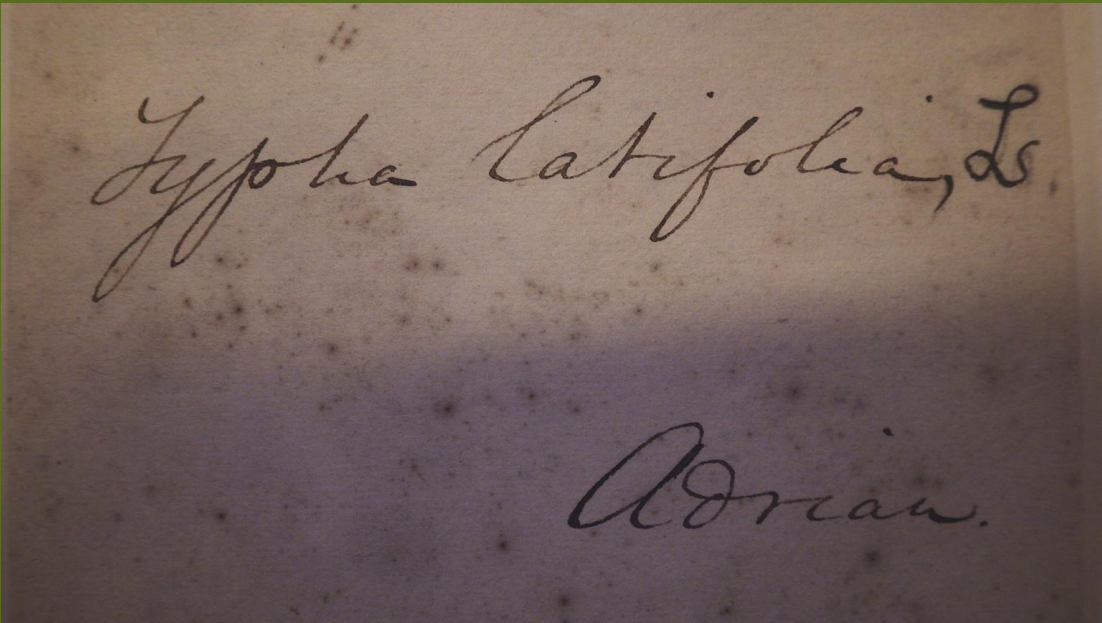 Typha latifolia, Ls.
Adrian.